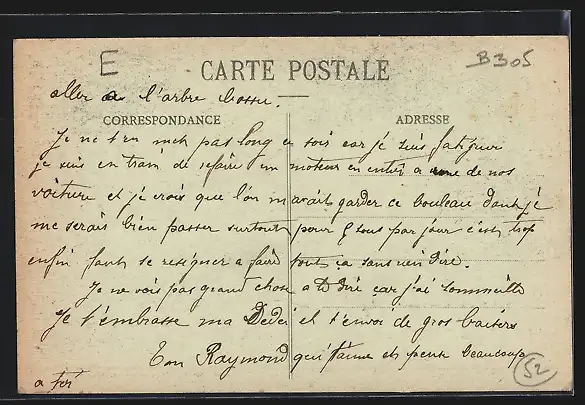 E
B305
CARTE POSTALE
aller a l'arbre bossu.
CORRESPONDANCE
ADRESSE
Je ne t'en meh pas long ce soir car je suis fatiguer
je suis en train de refaire un moteur en entier a une de nos
voiture et je crois que l'on m'avait garder ce bouleau dont je
me serais bien passer surtout pour 5 sous par jour c'est trop
enfin faut se resigner a faire tout ça sans rien dire.
Je ne vois pas grand chose a te dire car j'ai sommeille
Je t'embrasse ma Dedei et t'envoi de gros baisers
Ton Raymond qui t'aime et pense beaucoup
a toi
52